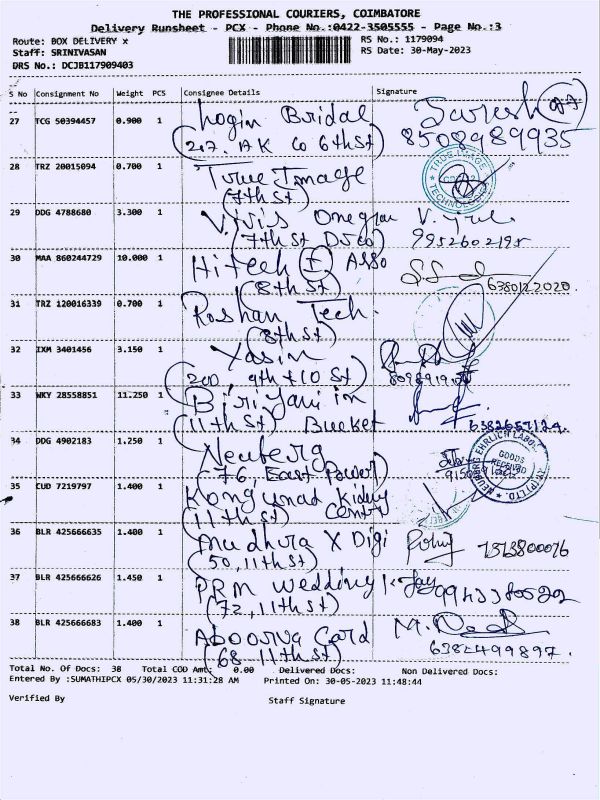 THE PROFESSIONAL COURIERS, COIMBATORE
Delivery Runsheet - PCX - Phone No.:0422-3505555 - Page No.:3
Route: BOX DELIVERY x RS No.: 1179094
Staff: SRINIVASAN RS Date: 30-May-2023
DRS No.: DCJB117909403
S No Consignment No Weight PCS Consignee Details Signature
27 TCG 50394457 0.900 1 Login Bridal
8508989935
28 TRZ 20015094 0.700 1 True Image
(7th St) TRUE IMAGE TECHNOLOGIES
29 DDG 4788680 3.300 1
(7th St 9952602195
30 MAA 860244729 10.000 1 Hitech Asso
(8th St) 6380122020
31 TRZ 120016339 0.700 1 Roshan Tech.
(8th St)
32 IXM 3401456 3.150 1 Yasin
(200, 9th + 10 St)
33 WKY 28558851 11.250 1 Biriyani in
(11th St) Bucket
34 DDG 4902183 1.250 1 Neuberg
(76, East Power) GOODS RECEIVED
35 CUD 7219797 1.400 1 Kongunad Kidney
(11th St) Centre
36 BLR 425666635 1.400 1 Mudhra X Digi
(50, 11th St)
37 BLR 425666626 1.450 1 PRM Wedding
(72, 11th St)
38 BLR 425666683 1.400 1 Aboorva Card
(68 11th St) 6382499897
Total No. Of Docs: 38 Total COD Amt: 0.00 Delivered Docs: Non Delivered Docs:
Entered By :SUMATHIPCX 05/30/2023 11:31:28 AM Printed On: 30-05-2023 11:48:44
Verified By Staff Signature